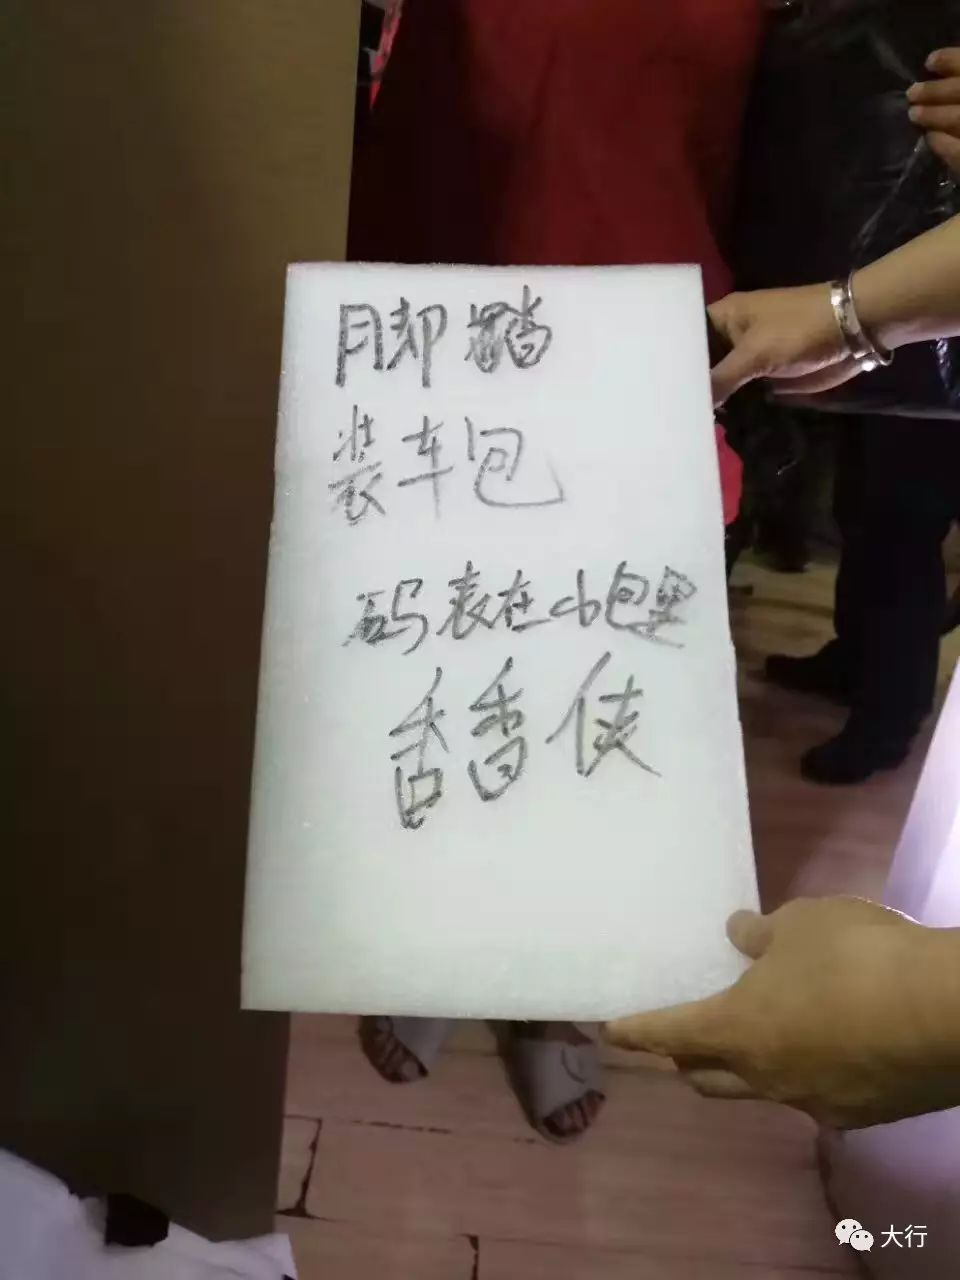 脚踏
装车包
码表在小包里
香香侠
大行